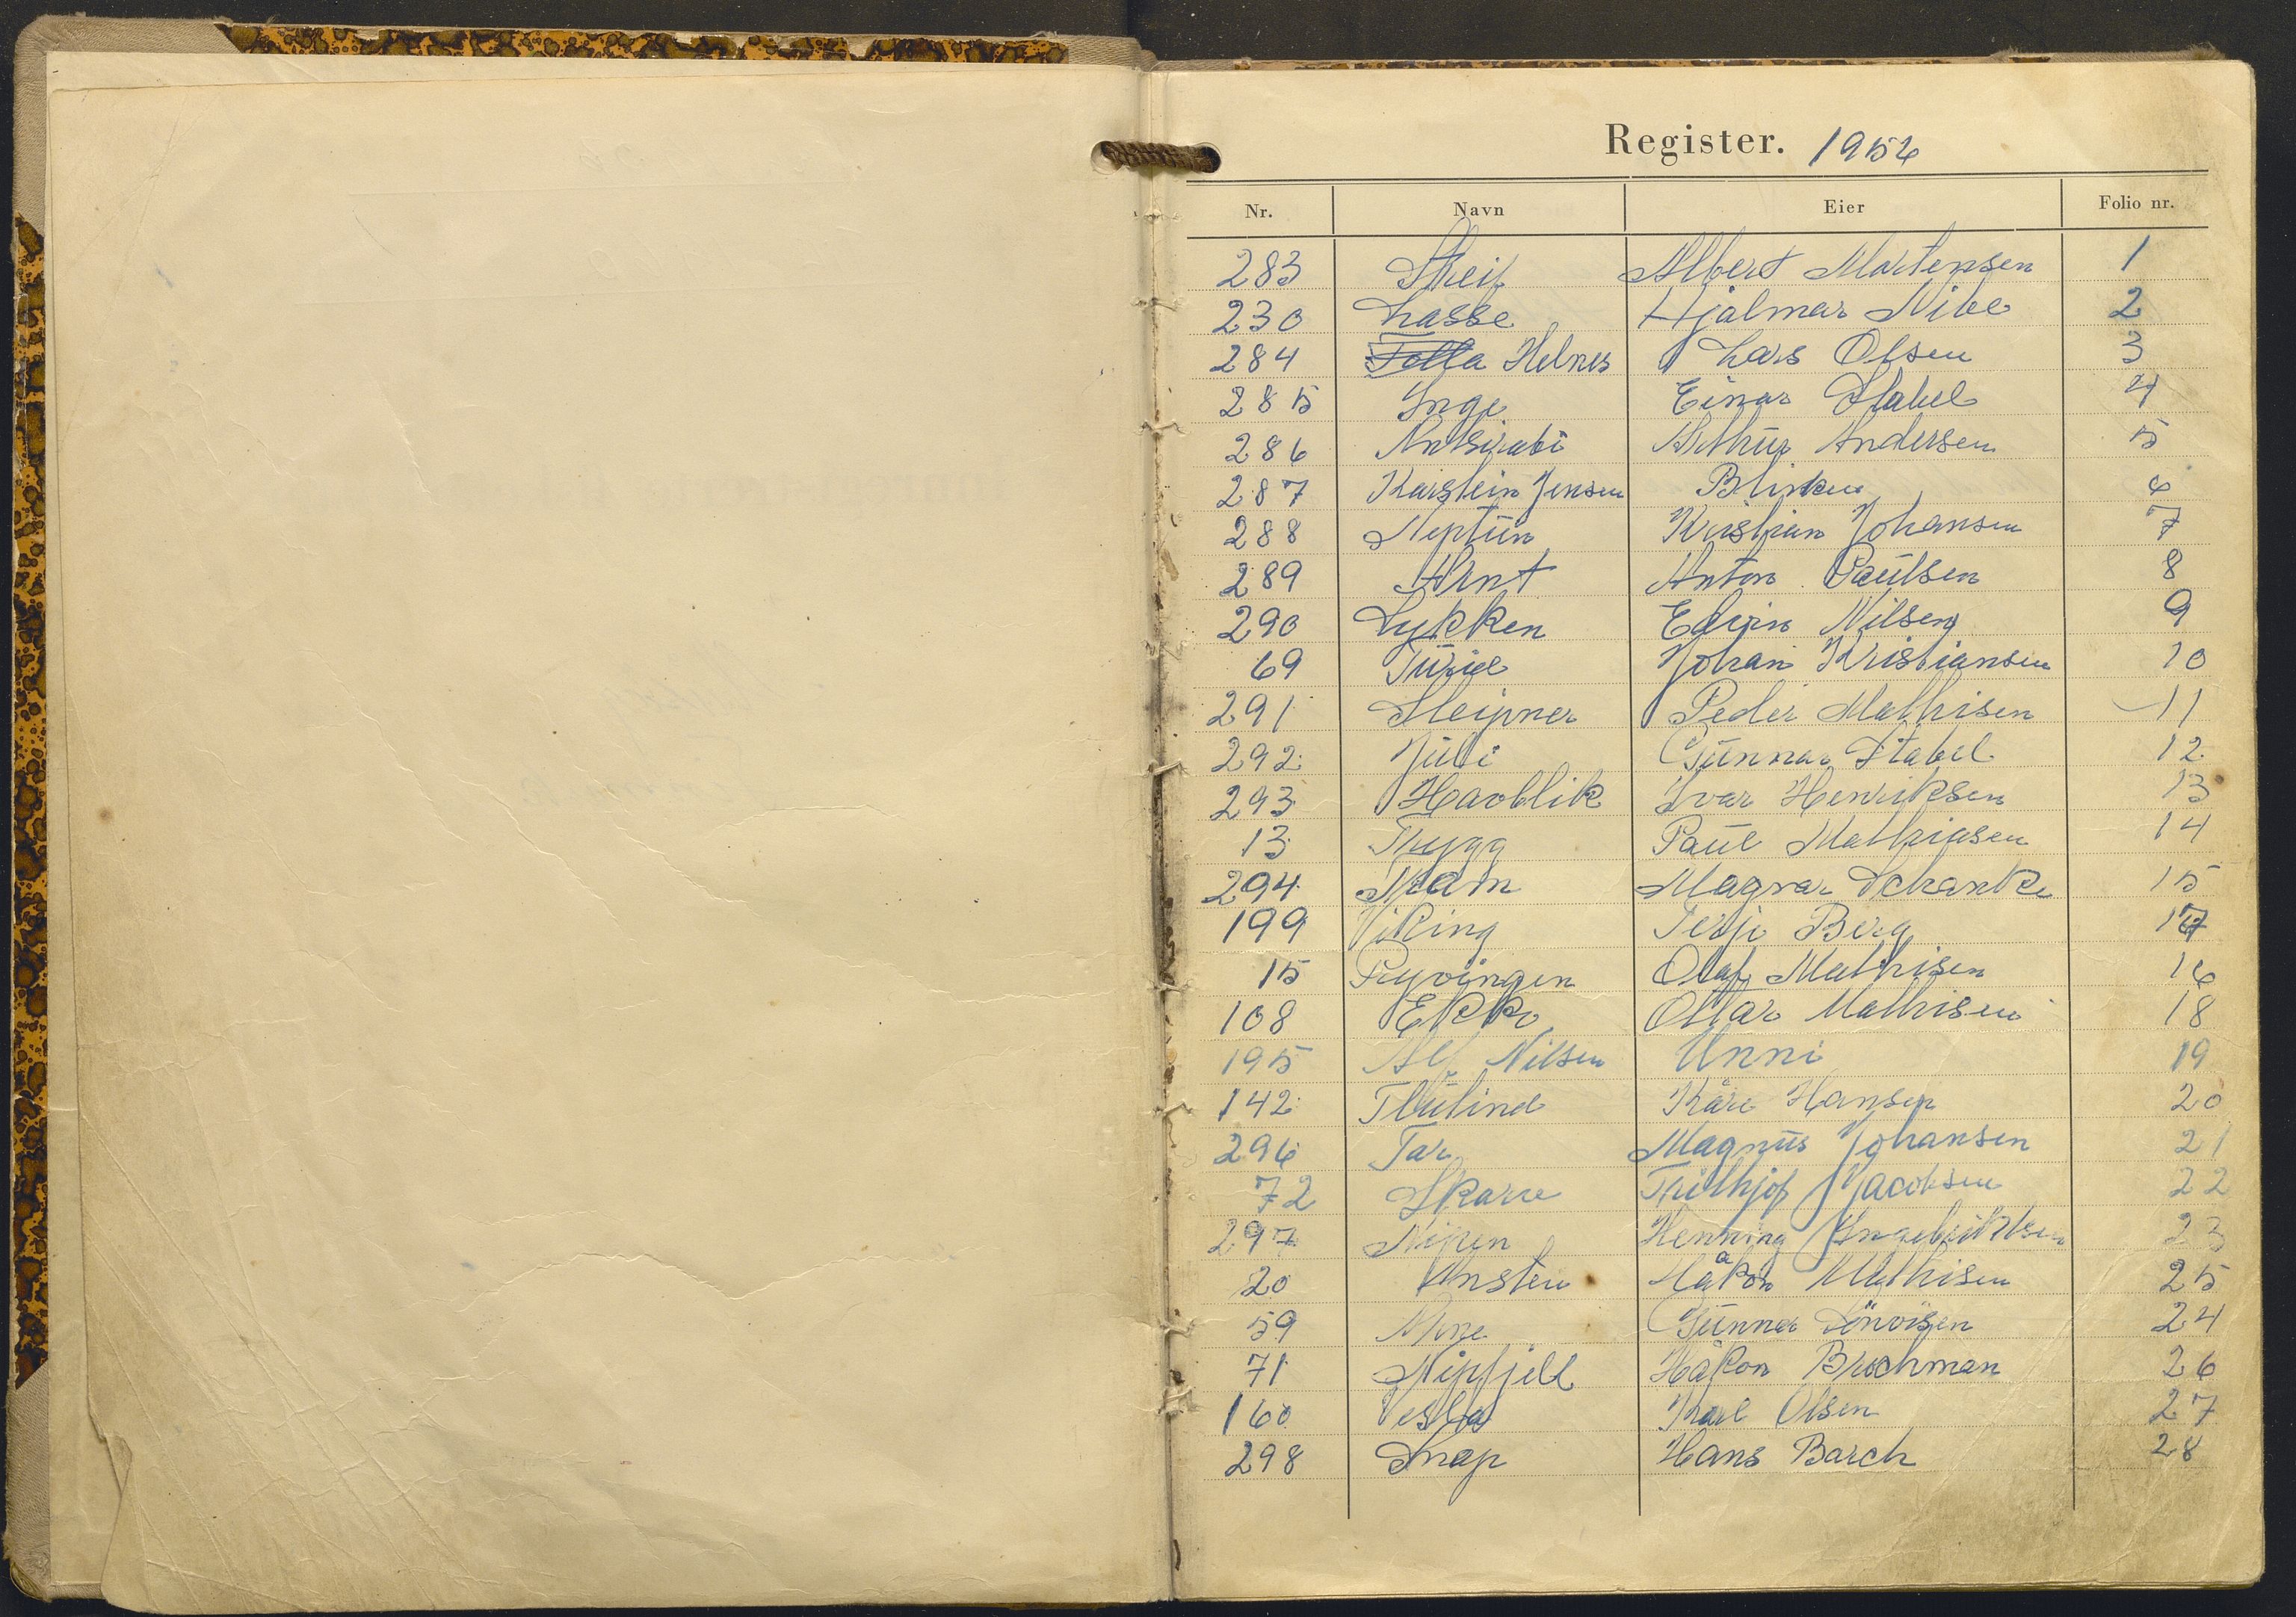 Register. 1956
Nr. Navn Eier Folio nr.
283 Streif Albert Martensen 1
230 Lasse Hjalmar Nibe 2
284 Tolla Helnes Lars Olsen 3
285 Inge Einar Stabel 4
286 Antsirabi Arthur Andersen 5
287 Karstein Jensen Blinken 6
288 Neptun Kristian Johansen 7
289 Arnt Anton Paulsen 8
290 Lykken Edvin Nilsen 9
69 Turid Johan Kristiansen 10
291 Sleipner Peder Mathisen 11
292 Juli Gunnar Stabel 12
293 Havblik Ivar Henriksen 13
13 Trygg Paul Mathiasen 14
294 Fram Magnar Schanke 15
199 Viking Terje Berg 17
15 Pryvingen Olaf Mathisen 16
108 Ekko Ottar Mathisen 18
195 Alf Nilsen Unni 19
142 Thulind Kåre Hansen 20
296 Tar Magnus Johansen 21
72 Skarve Frithjof Jacobsen 22
297 Nipen Henning Ingebriktsen 23
20 Ansten Håkon Mathisen 25
59 Gunnar Sönvisen 24
71 Nipfjell Håkon Brochman 26
160 Vesla Karl Olsen 27
298 Snap Hans Barch 28